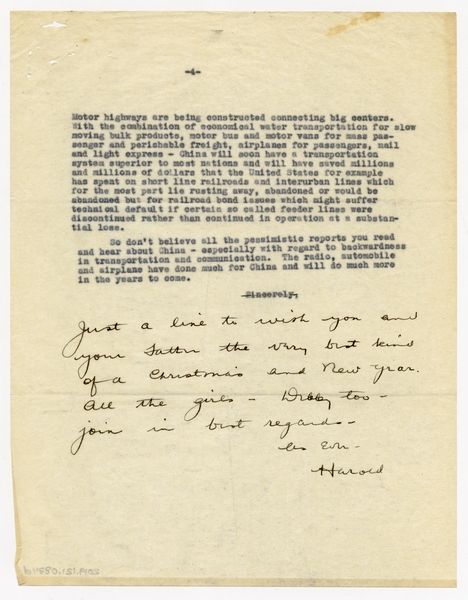 -4-
Motor highways are being constructed connecting big centers.
With the combination of economical water transportation for slow
moving bulk products, motor bus and motor vans for mass pas-
senger and perishable freight, airplanes for passengers, mail
and light express - China will soon have a transportation
system superior to most nations and will have saved millions
and millions of dollars that the United States for example
has spent on short line railroads and interurban lines which
for the most part lie rusting away, abandoned or would be
abandoned but for railroad bond issues which might suffer
technical default if certain so called feeder lines were
discontinued rather than continued in operation at a substan-
tial loss.
So don't believe all the pessimistic reports you read
and hear about China - especially with regard to backwardness
in transportation and communication. The radio, automobile
and airplane have done much for China and will do much more
in the years to come.
Sincerely,
Just a line to wish you and
your Father the very best kind
of a Christmas and New Year.
All the girls - too -
join in best regards -
As Ever -
Harold